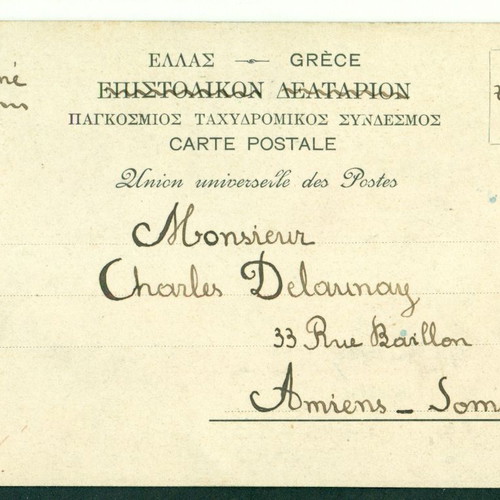 ΕΛΛΑΣ — GRÈCE
ΕΠΙΣΤΟΛΙΚΟΝ ΔΕΛΤΑΡΙΟΝ
ΠΑΓΚΟΣΜΙΟΣ ΤΑΧΥΔΡΟΜΙΚΟΣ ΣΥΝΔΕΣΜΟΣ
CARTE POSTALE
Union universelle des Postes
Monsieur
Charles Delaunay
33 Rue Baillon
Amiens - Som